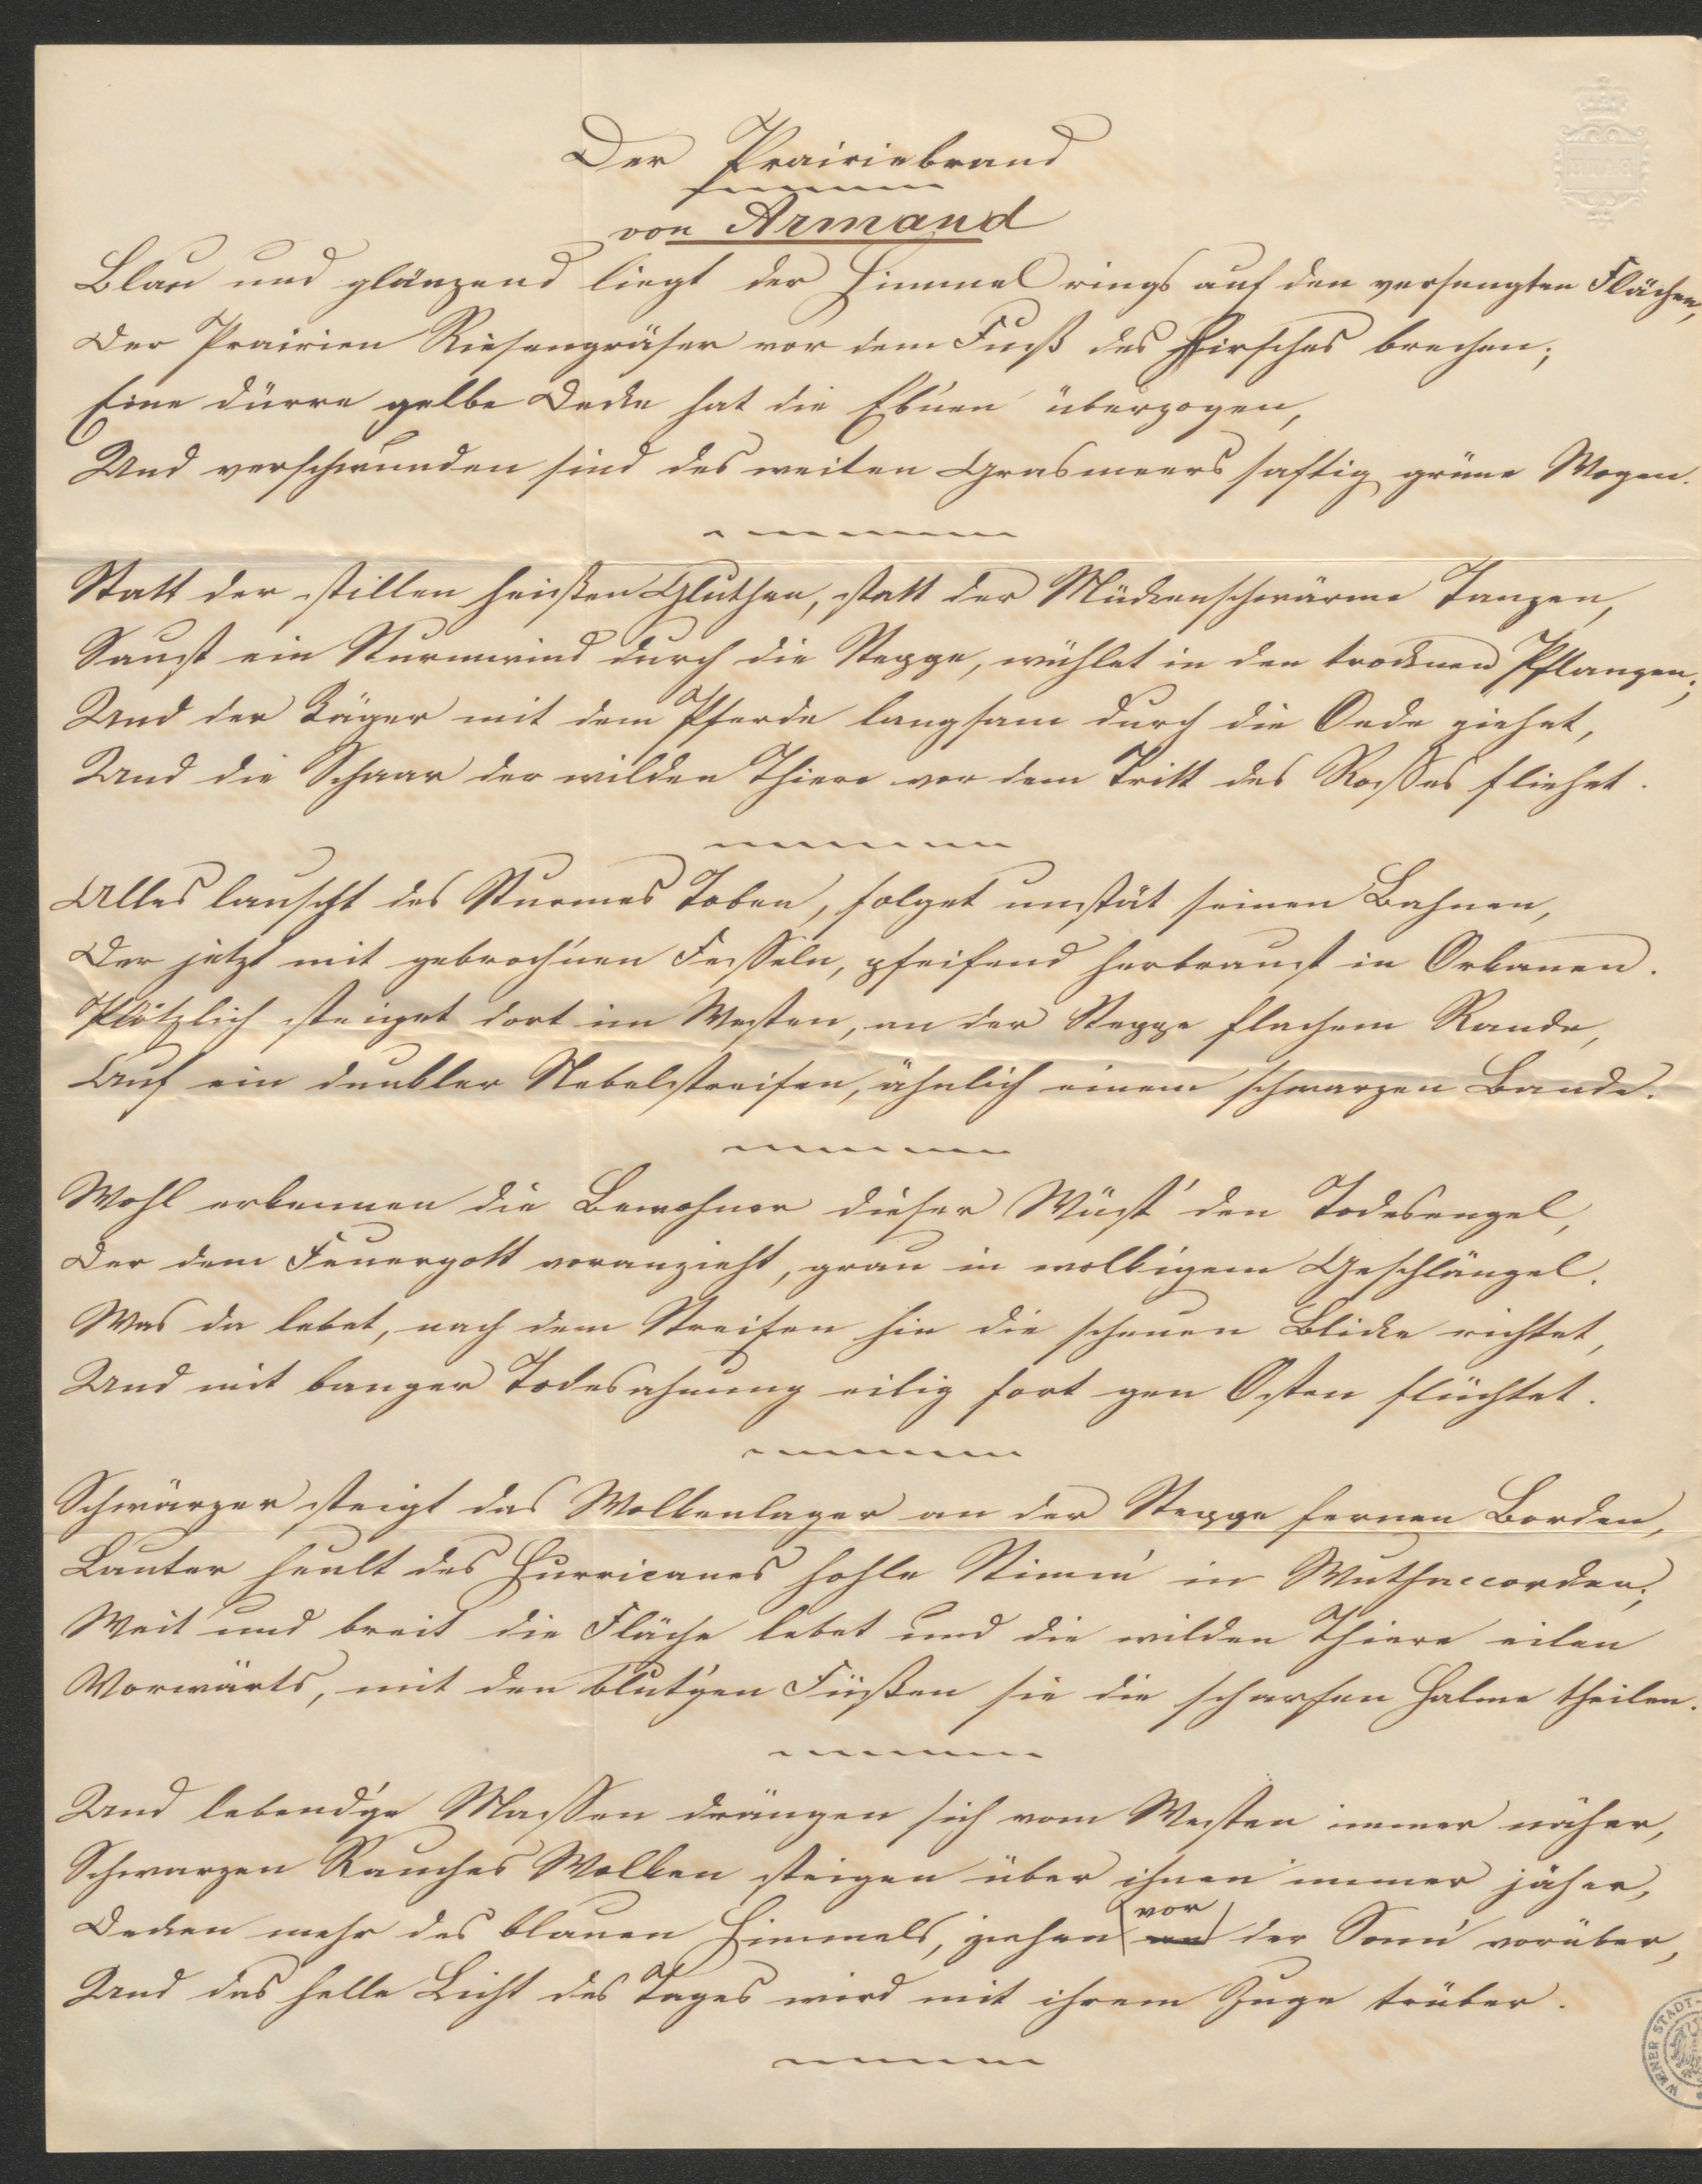 Der Prairiebrand
von Armand
Blau und glänzend liegt der Himmel rings auf den versengten Flächen,
Der Prairien Riesengräser vor dem Fuß des Hirsches brechen;
Eine dürre gelbe Decke hat die Eb'nen überzogen,
Und verschwunden sind des weiten Grasmeers saftig grüne Wogen.
Statt der stillen heißen Gluthen, statt der Mückenschwärme Tanzen,
Saust ein Sturmwind durch die Steppe, wühlet in den trocknen Pflanzen;
Und der Jäger mit dem Pferde langsam durch die Oede ziehet,
Und die Schaar der wilden Thiere vor dem Tritt des Rosses fliehet.
Alles lauscht des Sturmes Toben, folget unstät seinen Bahnen,
Der jetzt mit gebroch'nen Fesseln, pfeifend herbraust in Orkanen.
Plötzlich steiget dort im Westen, an der Steppe flachem Rande,
Auf ein dunkler Nebelstreifen, ähnlich einem schwarzen Bande.
Wohl erkennen die Bewohner dieser Wüst' den Todesengel,
Der dem Feuergott voranzieht, grau in wolkigem Geschlängel.
Was da lebet, nach dem Streifen hin die scheuen Blicke richtet,
Und mit banger Todesahnung eilig fort gen Osten flüchtet.
Schwärzer steigt das Wolkenlager an der Steppe fernen Borden,
Lauter heult des Hurricanes hohle Stimm' in Wuthaccorden;
Weit und breit die Fläche lebet und die wilden Thiere eilen
Vorwärts, mit den blut'gen Füßen sie die scharfen Halme theilen.
Und lebend'ge Massen drängen sich vom Westen immer näher,
Schwarzen Rauches Wolken steigen über ihnen immer jäher,
Decken mehr des blauen Himmels, ziehen vor der Sonn' vorüber,
Und das helle Licht des Tages wird mit ihrem Zuge trüber.
WIENER STADT-